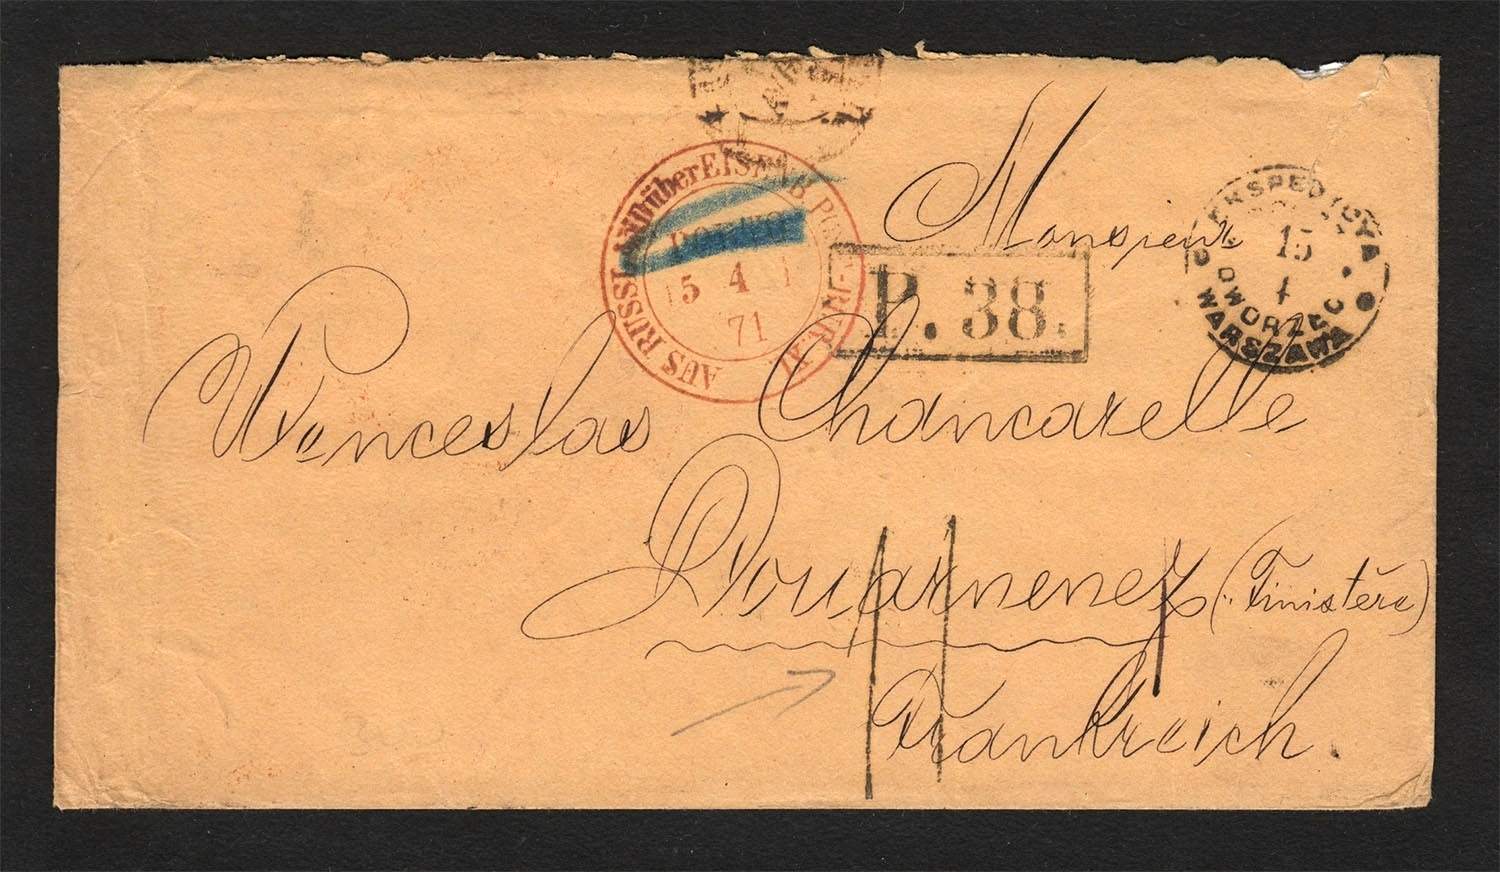 AUS RUSSLAND über EISENB. POST
5 4
71
P. 38.
EKSPEDYCYA
15
4
DWORZEC
WARSZAWA
Monsieur
Wenceslas Chancerelle
Douarnenez (Finistère)
Frankreich.